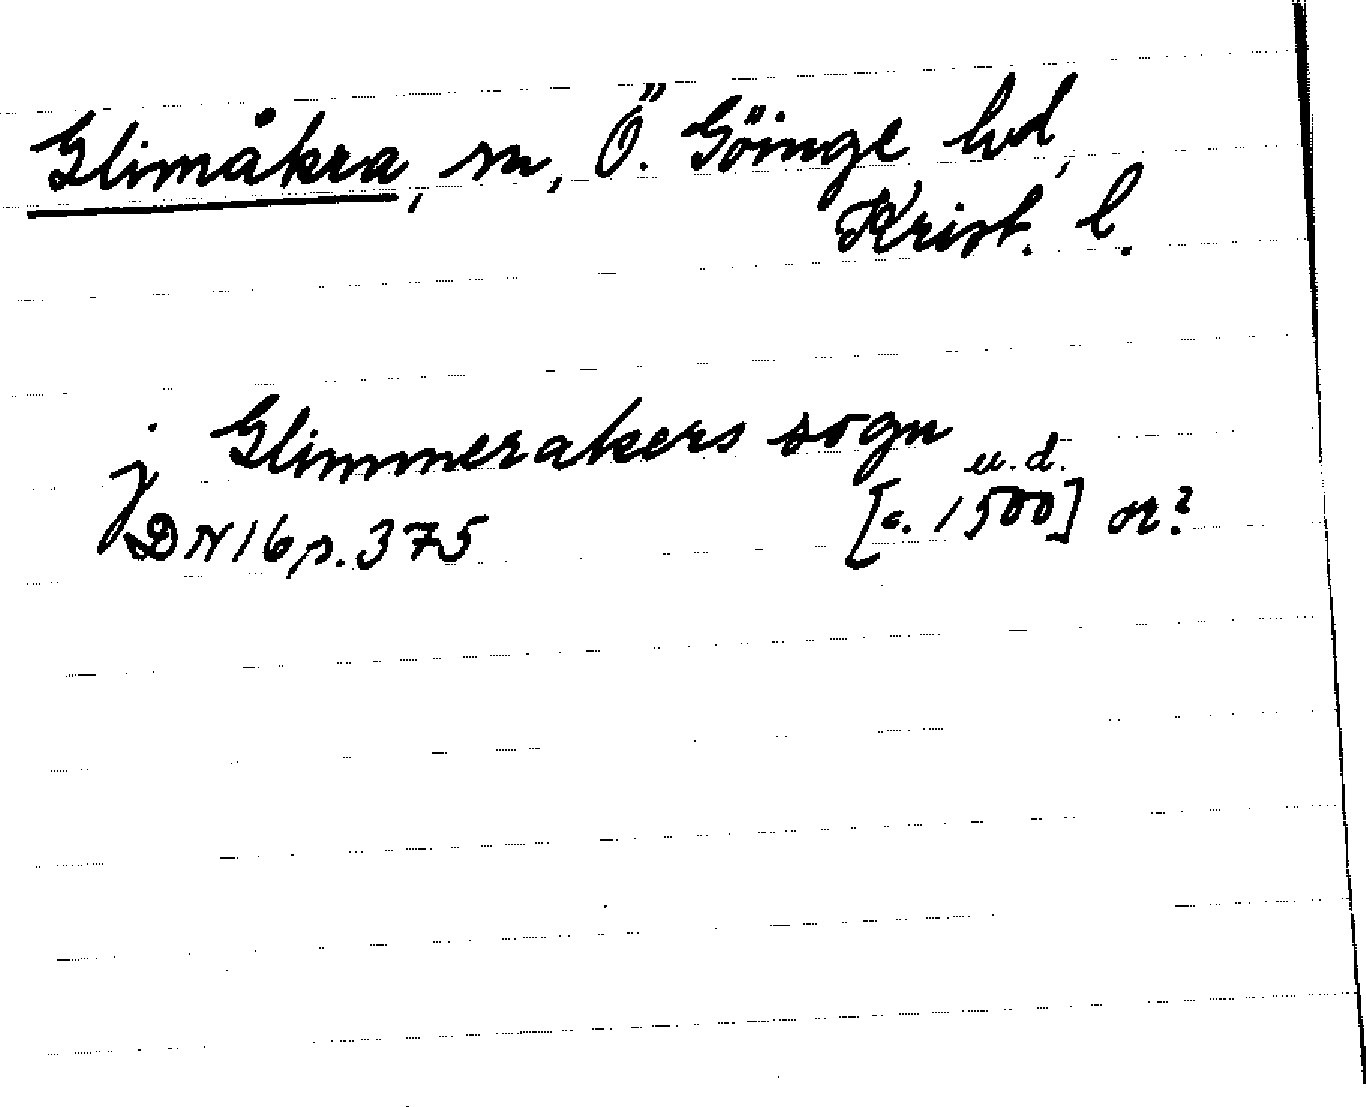 Glimåkra, sn, Ö. Göinge hd,
Krist. l.
j Glimmerakers sogn
u.d.
DN 16 s. 375 [c. 1500] or?